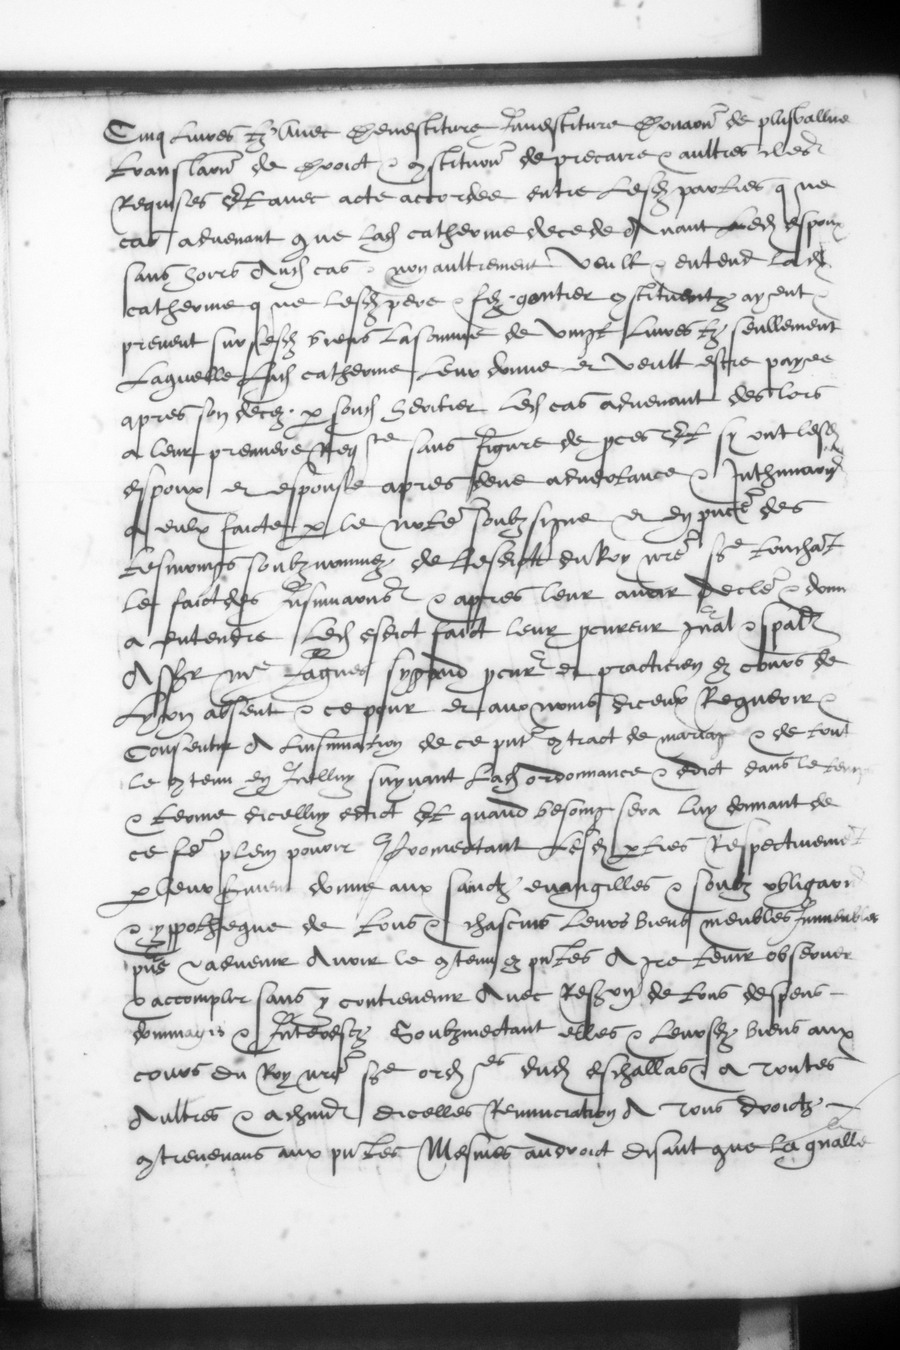 Cinq livres tz avec devestiture Investiture donaon de plusvallue
translaon de droict & constituon de precaire & aultres clles
Requises Et avec acte accordee entre lesd parties que
cas advenant que lad catherine decede davant led espoux
sans hoirs Aud cas & non aultrement veult & entend lad
catherine que lesd pere & filz gontier constituentz ayent &
prenent sur sesd biens la somme de vingt livres tz seullement
Laquelle lad catherine leur donne et veult estre payee
apres son decez p sond heritier led cas advenant des lors
a leur premiere Reqste sans figure de pces Et sy ont lesd
espoux et espouse apres deue advertance & Inthimaon
a eulx faicte p le note soubzsigne et en pnce des
tesmoings soubznommez de lesdict du Roy nre sre touchat
le faict des Insinuaons & apres leur avoir decle & donne
a entendre led esdict faict leur pcureur gnal & spal
Assr me Lagnes pcur et practicien es cours de
Lyon absent & ce pour et aux noms diceulx Requerir &
Consentir A linsinuation de ce pnt contract de mariage & de tout
le contenu en Icelluy suyvant lad ordonnance & edict dans le temps
& terme dicelluy edict Et quand besoing sera luy donnant de
ce fe plein pouvoir Promectant lesd pties Respectivement
p leur serment donne aux sainctz evangilles & soubz obligaon
& yppotheque de tous & chascuns leurs biens meubles Immeubles
pns & advenir Avoir le contenu es pntes A gre tenir observer
& accomplir sans y contrevenir Avec Reston de tous despens
dommages & Interestz Soubzmectant elles & leursd biens aux
cours du Roy nre sre ord dud eschallas & a toutes
Aultres & a chune dicelles Renunciation A tous droictz
contrevenans aux pntes Mesmes au droict disant que la gnalle